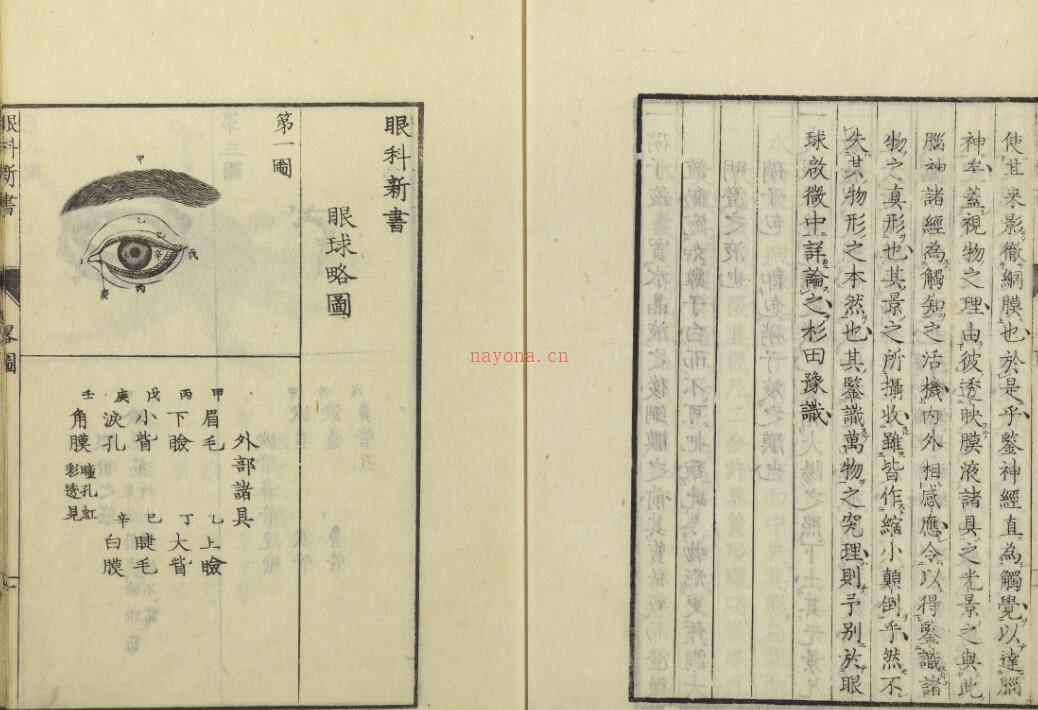 使其来影徹網膜也於是乎鑒神經直為觸覺以達腦
神牟蓋視物之理由彼透映膜液諸具之光景之與此
腦神諸經為觸知之活機內外相感應令以得鑒識諸
物之真形也其景之所攝收雖皆作縮小顛倒乎然不
失其物形之本然也其鑒識萬物之究理則予別於眼
球啟微中詳論之杉田豫識
眼科新書
眼球略圖
第一圖
甲
乙
己
戊
辛
丙
庚
外部諸具
甲眉毛 乙上瞼
丙下瞼 丁大眥
戊小眥 巳睫毛
庚淚孔 辛白膜
壬角膜 瞳孔虹彩透見
眼科新書 畧圖 一
nayona.cn